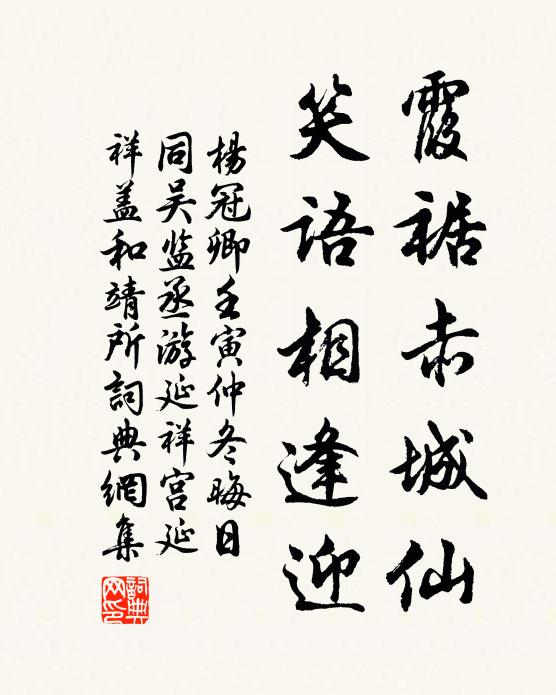 霞裾赤城仙
笑語相逢迎
楊冠卿壬寅仲冬晦日
同吴监丞游延祥宫延
祥盖和靖所詞典網集
詞典網印